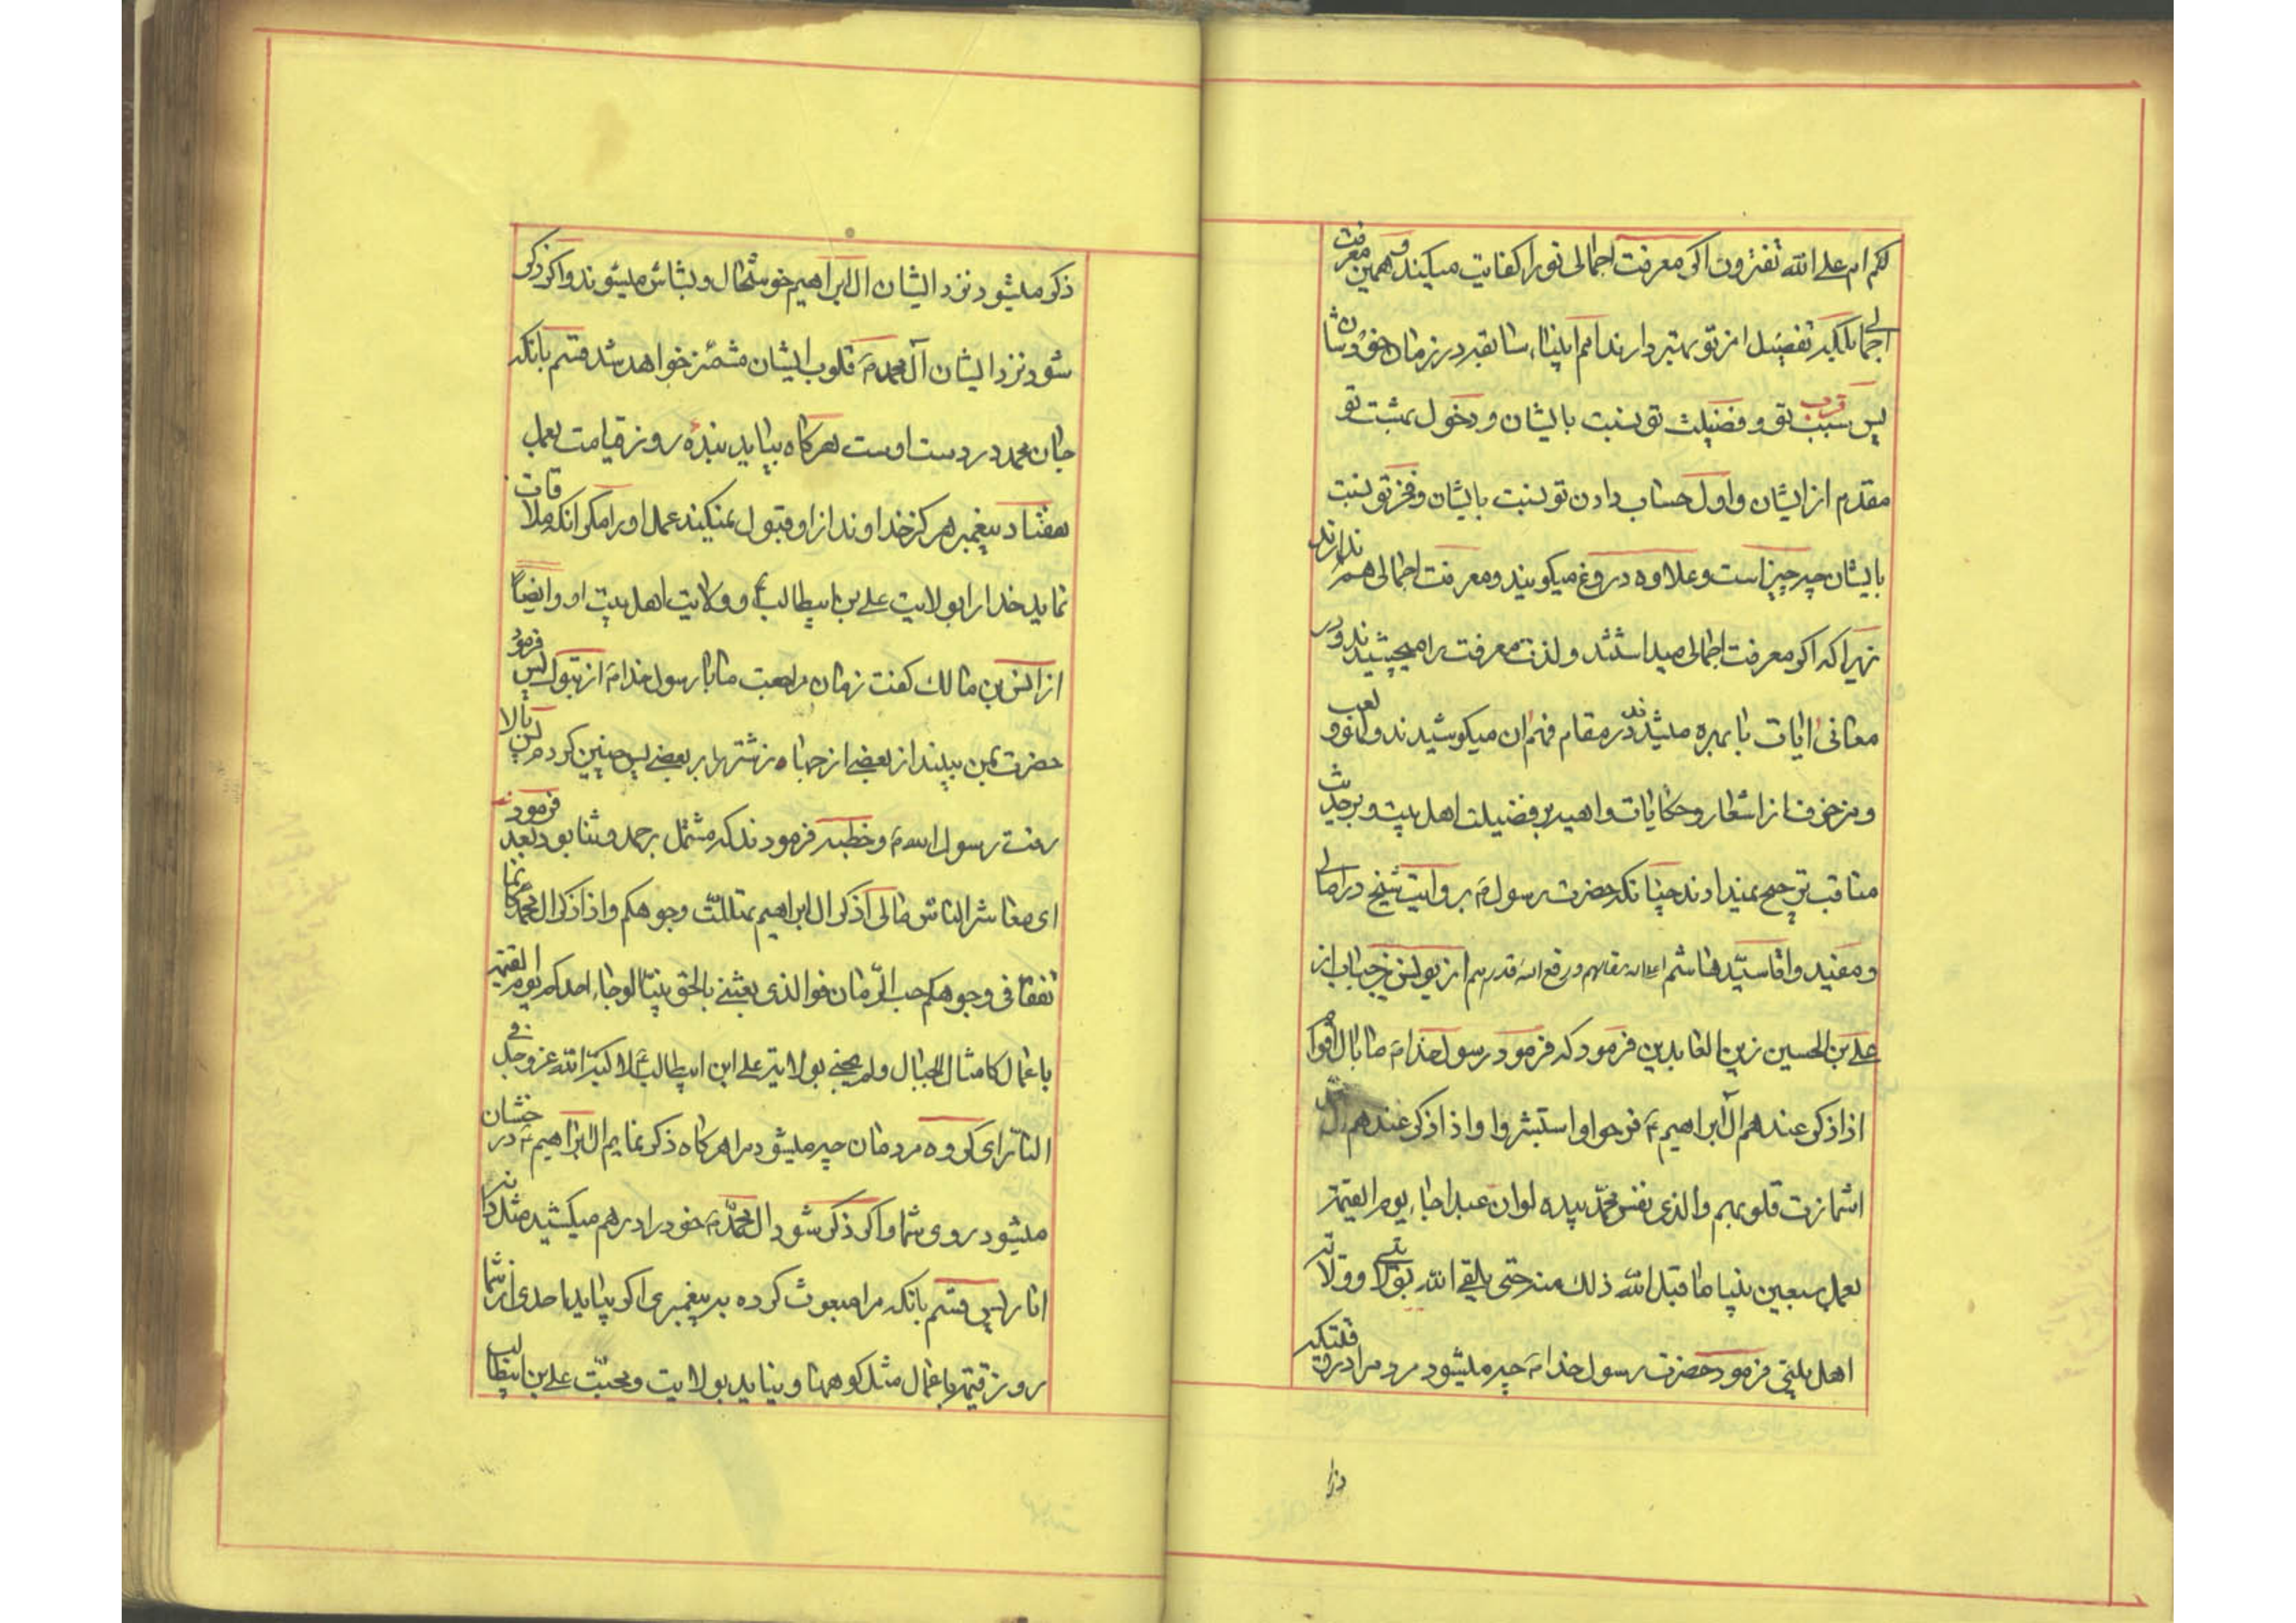 لکم ام علی الله تفترون اکر معرفت اجمالی تو را کفایت میکند و همین معرفت
اجمالی بلکه تفضیل از تو بهتر دارند امم انبیاء سابقه در زمان خودشان
پس سبب قرب تو و فضیلت تو نسبت بایشان و دخول بهشت تو
مقدم از ایشان و اول حساب دادن تو نسبت بایشان و فخر تو نسبت
بایشان چه چیز است و علاوه دروغ میکویند و معرفت اجمالی هم ندارند
زیرا که اکر معرفت اجمالی میداشتند و لذت معرفت را میچشیدند و در
معانی ایات با بهره میشدند در مقام فهم ان میکوشیدند و لعب و لغو و
و مزخرفات از اشعار و حکایات واهیه بر فضیلت اهل بیت و بر حدیث
مناقب ترجیح نمیدادند چنانکه حضرت رسول م بروایت شیخ در امالی
و مفید و اقا سید هاشم اعلا الله مقامهم و رفع الله قدرهم از یونس بن خباب از
علی بن الحسین زین العابدین فرمود که فرمود رسول خدا م ما بال اقوام
اذا ذکر عندهم آل ابراهیم ع فرحوا و استبشروا و اذا ذکر عندهم ال
اشمازت قلوبهم والذی نفس محمد بیده لو ان عبدا جاء یوم القیمة
بعمل سبعین نبیا ما قبل الله ذلک منه حتی یلقی الله بولایتی و ولایة
اهل بیتی فرمود حضرت رسول خدا م چه میشود مردم را در وقتیکه
ذکر میشود نزد ایشان ال ابراهیم خوشحال و بشاش میشوند و اکر ذکر
شود نزد ایشان آل محمد م قلوب ایشان مشمئز خواهد شد قسم بانکه
جان محمد در دست اوست هرکاه بیاید بنده روز قیامت بعمل
هفتاد پیغمبر هرکز خداوند از او قبول نمیکند عمل او را مکر انکه ملاقات
نماید خدا را بولایت علی بن ابیطالب ع و ولایت اهل بیت او و ایضا
از انس بن مالک کفت زمان مراجعت ما با رسول خدا م از تبوک پس فرمود
حضرت بمن بیند از بعضی از جهاز شتر را بر بعضی پس چنین کردم پس بالا
رفت رسول الله م و خطبه فرمودند که مشتمل بر حمد و ثنا بود بعد فرمودند
ای معاشر الناس مالی اذ ذکر ال ابراهیم تهللت وجوهکم و اذا ذکر ال محمد کانما
تفقأ فی وجوهکم حب الرمان فوالذی بعثنی بالحق نبیا لو جاء احدکم یوم القیمة
باعمال کامثال الجبال ولم یجئ بولایة علی ابن ابیطالب ع لاکبه الله عز و جل فی
النار ای کروه مردمان چه میشود مرا هرکاه ذکر نمایم ال ابراهیم ع درخشان
میشود روی شما و اکر ذکر شود ال محمد م خود را درهم میکشید مثل دانه
انار پس قسم بانکه مرا مبعوث کرده به پیغمبری اکر بیاید احدی از شما
روز قیمة باعمال مثل کوهها و نیاید بولایت و محبت علی بن ابیطالب